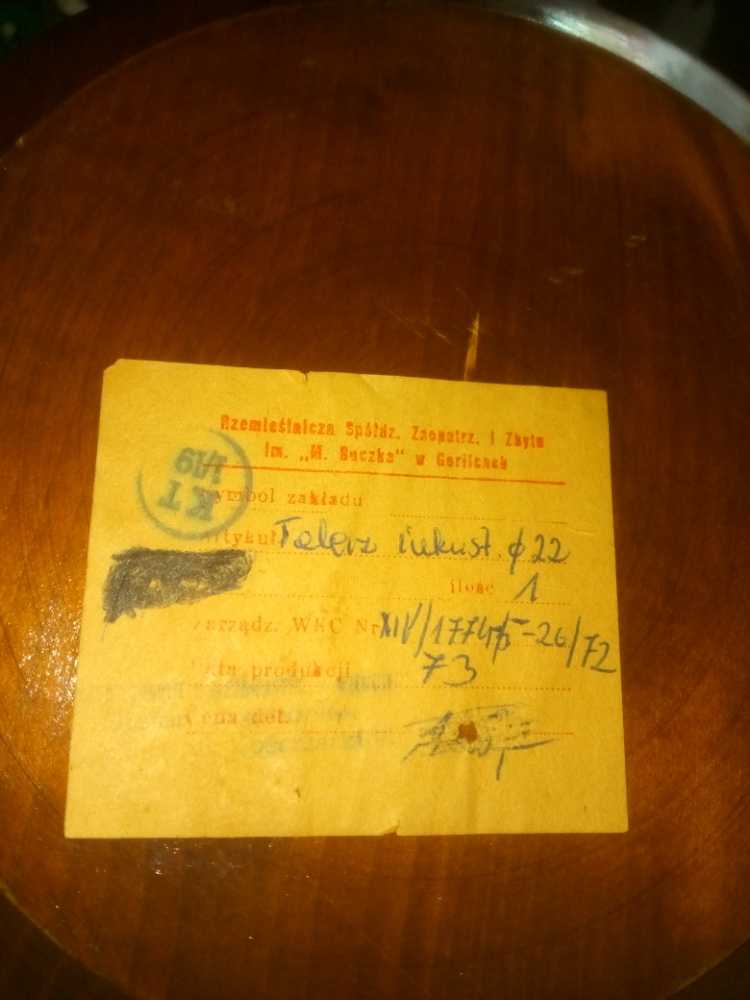 Rzemieślnicza Spółdz. Zaopatrz. i Zbytu
im. „M. Buczka" w Gorlicach
KT
symbol zakładu
artykuł Talerz inkust. φ 22
ilość 1
zarządz. WKC Nr XIV/17745-26/72
data produkcji 73
cena det.